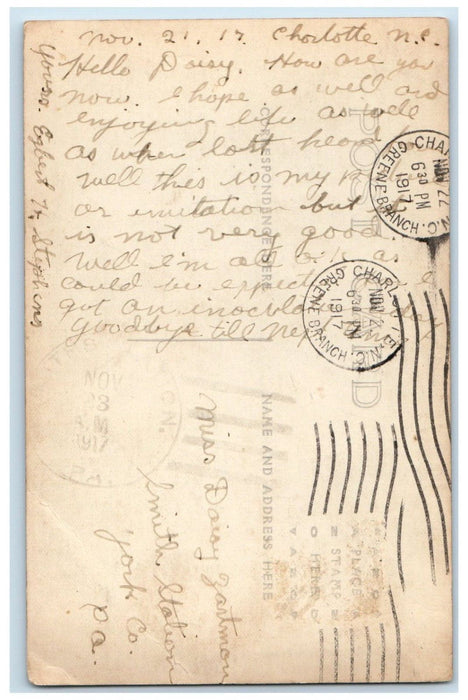 Nov. 21, 17. Charlotte N.C.
Hello Daisy. How are you
now. I hope as well and
enjoying life as well
as when last heard
Well this is my
or imitation but
is not very good.
Well I'm all O.K. as
could be expected
got an
Goodbye till next
Yours. Egbert H. Stephens
POST CARD
CORRESPONDENCE HERE
NAME AND ADDRESS HERE
Miss Daisy
Smith Station
York Co.
Pa.
CHARLOTTE, N.C.
NOV 22
630 PM
1917
GREENE BRANCH.
CHARLOTTE, N.C.
NOV 22
630 PM
1917
GREENE BRANCH.
NOV
23
1917
PA.
AZO
PLACE
STAMP
HERE
AZO